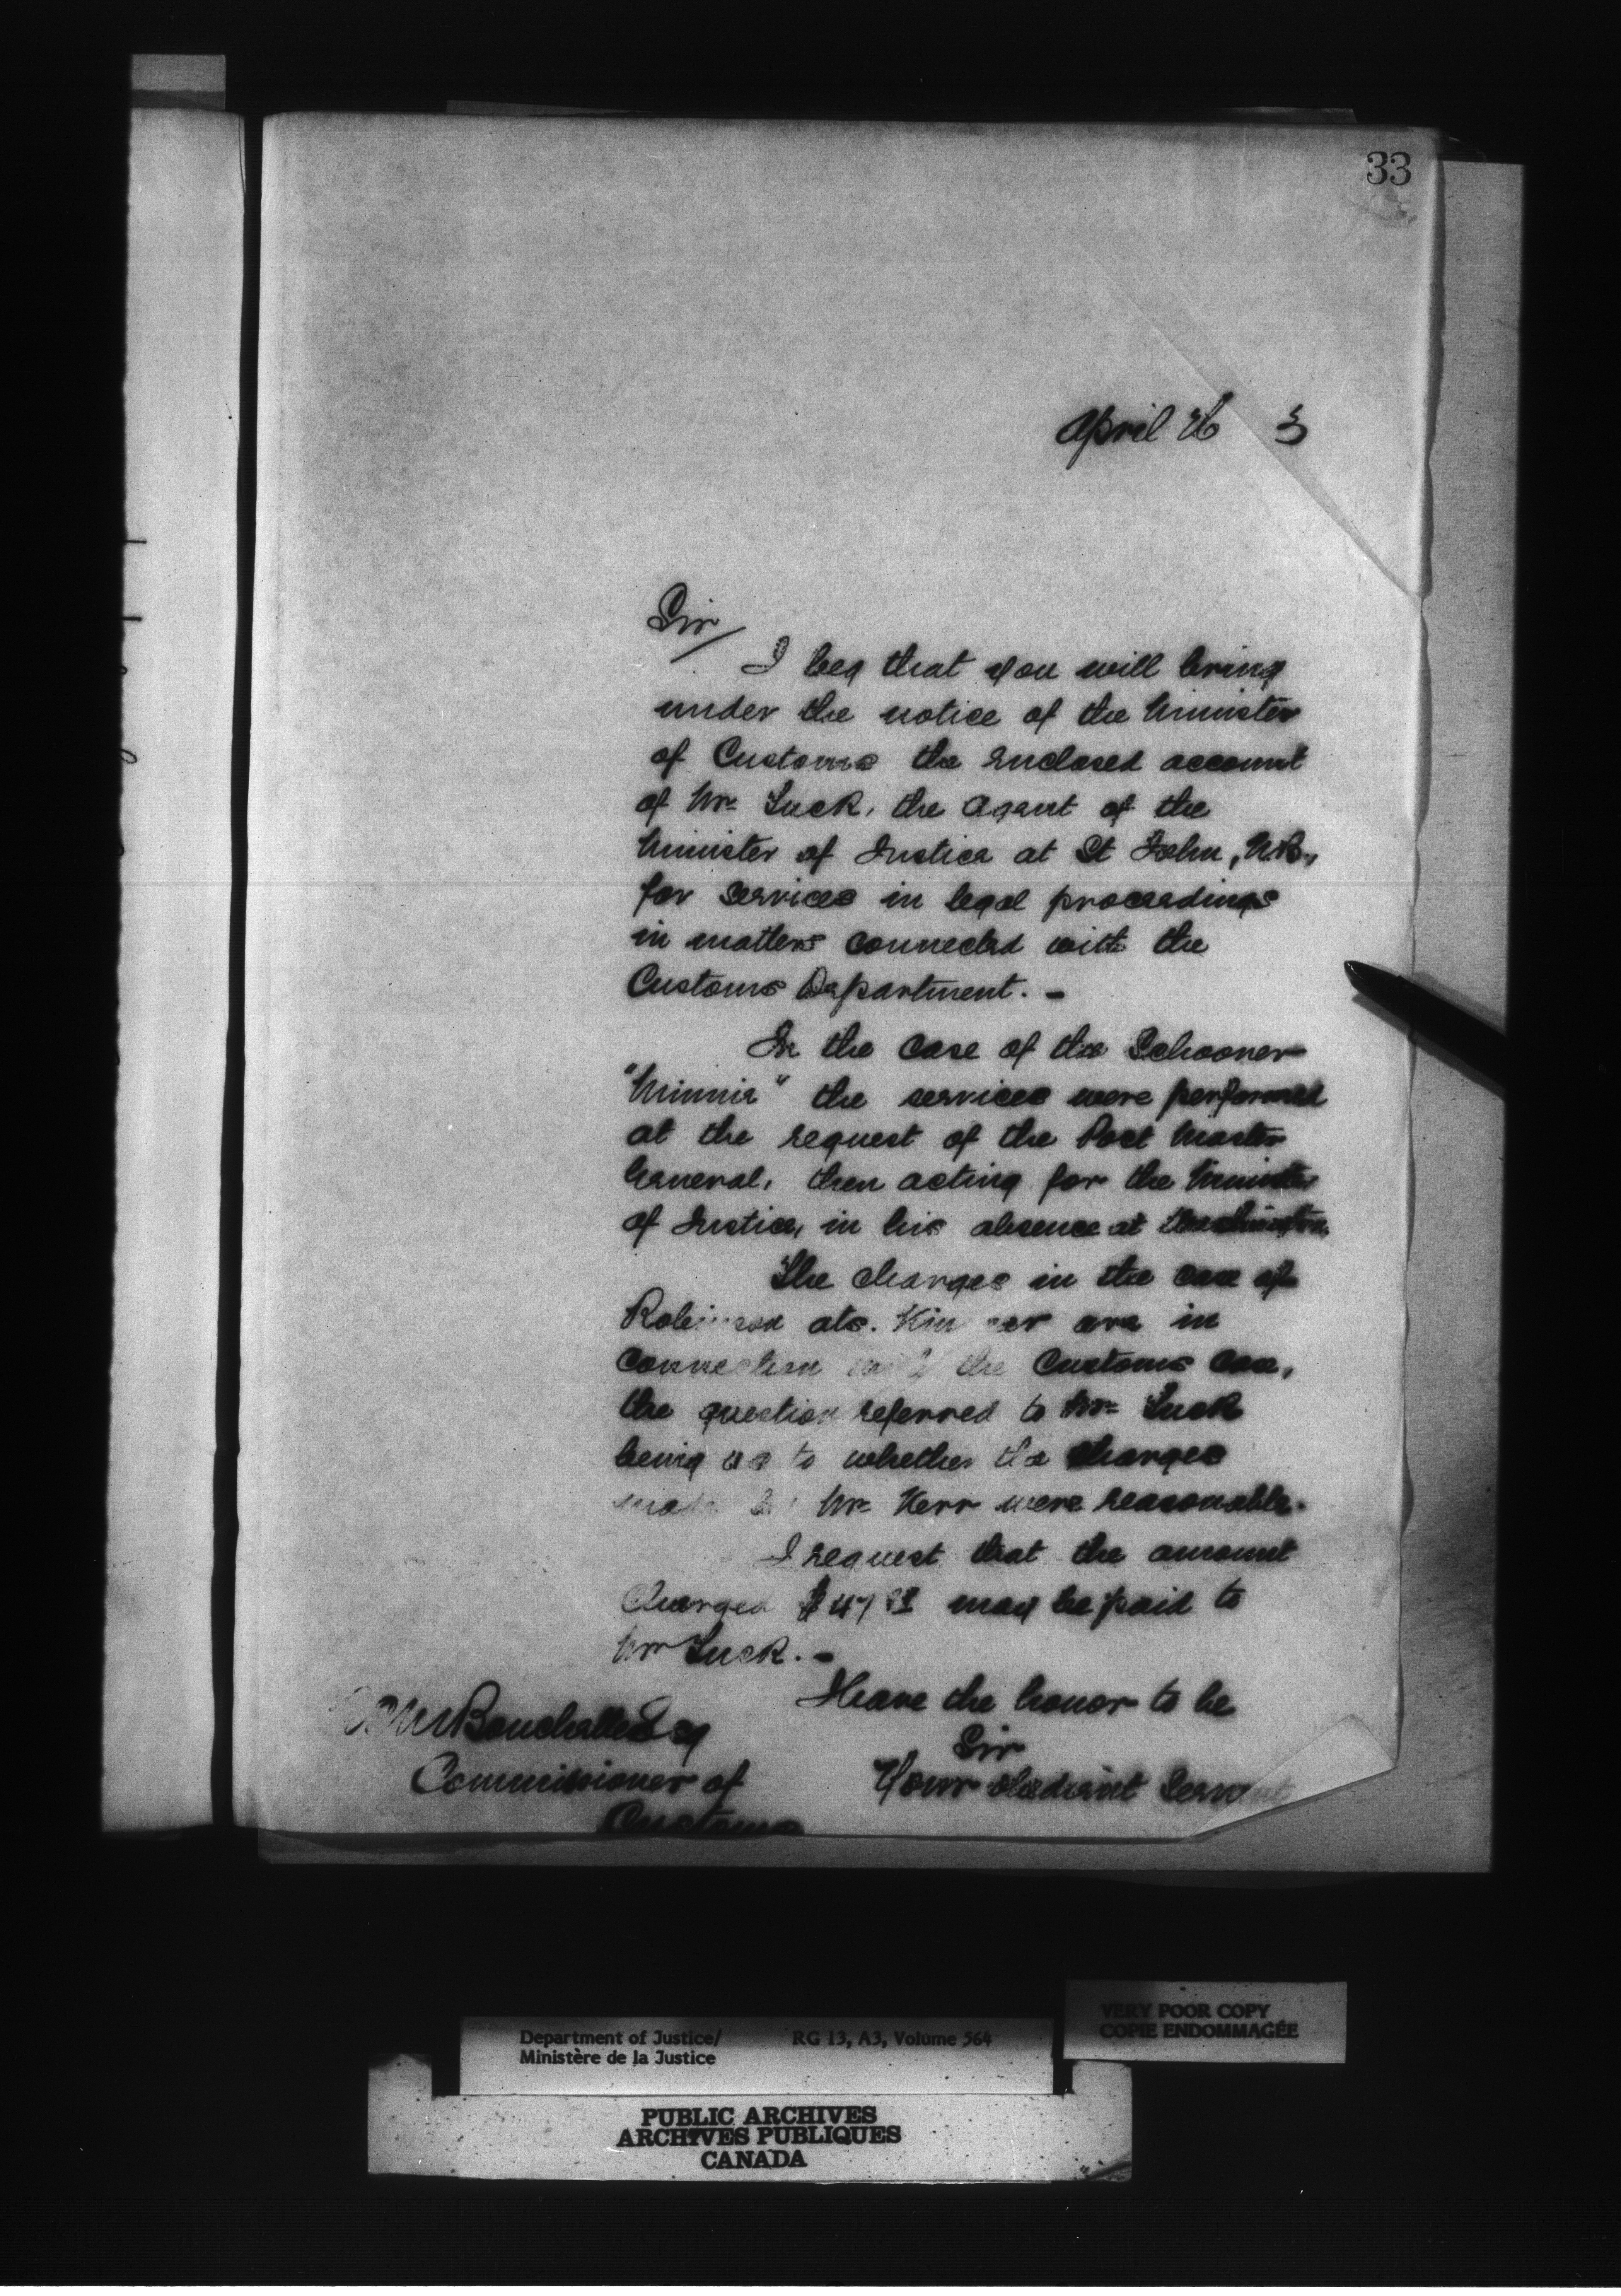 33
April 26 3
Sir/
I beg that you will bring
under the notice of the Minister
of Customs the enclosed account
of Mr. Tuck, the Agent of the
Minister of Justice at St John, N.B.,
for services in legal proceedings
in matters connected with the
Customs Department. -
In the case of the Schooner
"Minnie" the services were performed
at the request of the Post Master
General, then acting for the Minister
of Justice, in his absence at Washington
The charges in the case of
Robinson ats. are in
connection with the Customs case,
the question referred to Mr. Tuck
being as to whether the charges
made by Mr. Kerr were reasonable.
I request that the amount
charged may be paid to
Mr Tuck. -
I have the honor to be
Sir
Your obedient Servant
Bouchette Esq
Commissioner of
Customs
Department of Justice/ RG 13, A3, Volume 564
Ministère de la Justice
VERY POOR COPY
COPIE ENDOMMAGÉE
PUBLIC ARCHIVES
ARCHIVES PUBLIQUES
CANADA